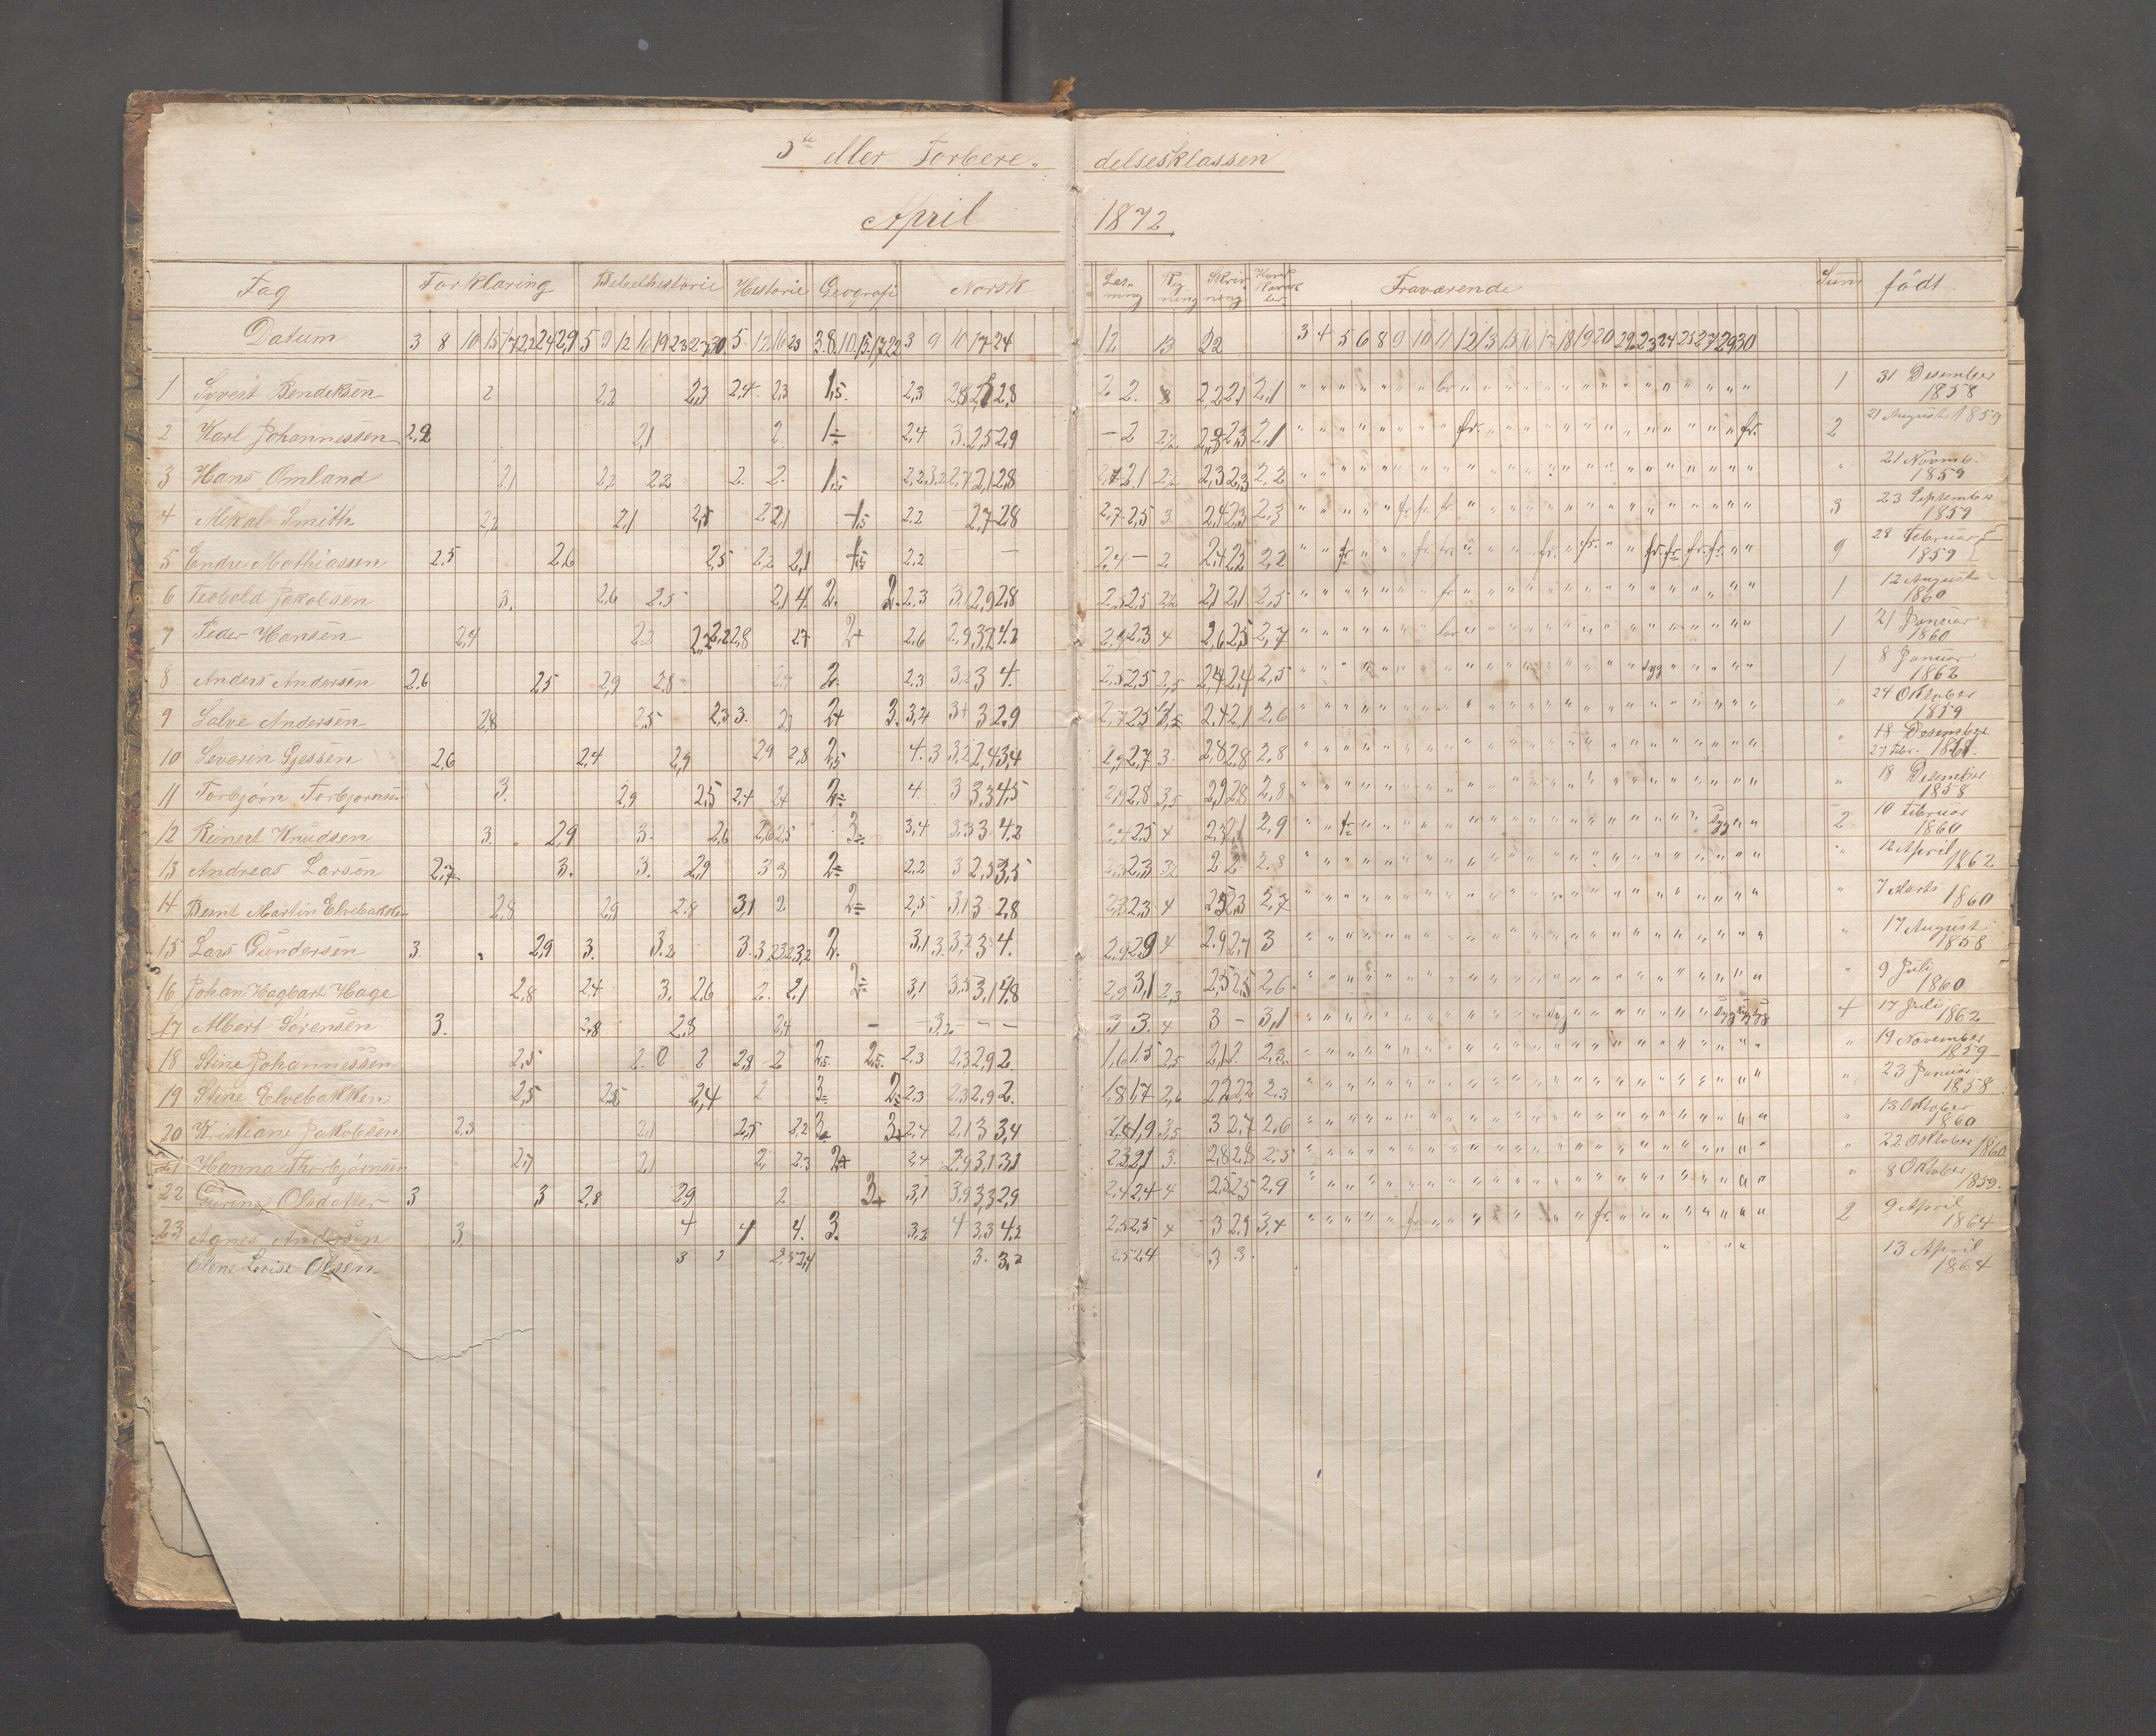 3te eller Forbere- delsesklassen
April 1872
Fag Forklaring Bibelhistorie Historie Geografi Norsk Læsning Regning Skrivning Fraværende Sum født
Datum 3 8 10 15 17 22 24 29 5 9 12 16 19 23 27 30 5 12 16 23 3 8 10 15 17 22 3 9 10 17 24 12 13 22 3 4 5 6 8 9 10 11 12 13 15 16 17 18 19 20 22 23 24 25 27 29 30
1 Syvert Bendiksen 2 2,2 2,3 2,4 2,3 1,5 2,3 2,8 2,8 2 2 2,2 2,1 2,1 1 31 Desember 1858
2 Karl Johannessen 2,2 2,1 2 1 2,4 3 2,5 2,9 - 2 2,3 2,1 fr. fr. 2 21 August 1859
3 Hans Omland 2,1 2,2 2,2 2 2 1,5 2,2 3,2 2,7 2,1 2,8 2,1 2,3 2,3 2,2 21 Novemb. 1859
4 Mikal Smith 2,2 2,1 2,2 2,1 2,2 2,7 2,8 2,7 2,5 3 2,4 2,3 2,3 fr. fr. fr. 3 23 September 1859
5 Endre Mathiassen 2,5 2,6 2,5 2,2 2,1 2,2 - - 2,4 - 2 2,4 2,2 2,2 fr fr. fr. fr. fr. fr. fr. fr. fr. 9 28 Februar 1859
6 Teobold Jakobsen 3. 2,6 2,5 2,1 4. 2. 2. 2,3 3,1 2,9 2,8 2,5 2,5 2,1 2,1 2,5 fr 1 12 August 1860
7 Peder Hansen 2,4 2,2 2,2 2,2 2,8 2,7 2+ 2,6 2,9 3,2 4,2 2,9 2,3 4 2,6 2,5 2,7 1 21 Januar 1860
8 Anders Andersen 2,6 2,5 2,9 2,8 2. 2,3 3 4. 2,5 2,5 2,5 2,4 2,4 2,5 syg 1 8 Januar 1862
9 Salve Andersen 2,8 2,5 2,3 3. 2+ 3. 3,4 3+ 3 2,9 2,7 2,5 2,4 2,1 2,6 24 Oktober 1859
10 Severin Gjessen 2,6 2,4 2,9 2,9 2,8 2,5 4. 3 3,2 2,4 3,4 2,9 2,7 3. 2,8 2,8 2,8 18 Desember 27 Febr. 1861
11 Torbjørn Torbjørnsen 3. 2,9 2,5 2,4 2,4 2 4. 3 3,3 4,5 2,9 2,8 3,5 2,9 2,8 2,8 18 Desember 1858
12 Reinert Knudsen 3. 2,9 3. 2,6 2,6 2,5 3 3,4 3,3 3 4,2 2,4 2,5 4 2,3 2,1 2,9 fr Syg 2 10 Februar 1860
13 Andreas Larsen 2,7 3. 3. 2,9 3 3 2 2,2 3 2,5 3,5 2,3 2,3 2 2 2,8 12 April 1862
14 Bernt Martin Elvebakken 2,8 2,9 2,8 3,1 2 2 2,5 3,1 3 2,8 2,3 2,3 4 2,3 2,7 7 Marts 1860
15 Lars Gundersen 3 2,9 3. 3,2 3. 3 2. 3,1 3. 3,2 3 4. 2,9 2,9 4 2,9 2,7 3 17 August 1858
16 Johan Hagbart Hage 2,8 2,4 3. 2,6 2. 2,1 2 3,1 3,5 3,1 4,8 2,9 3,1 2,3 2,5 2,5 2,6 9 Juli 1860
17 Albert Sørensen 3. 2,8 2,8 2,4 - 3,2 - - 3 3. 4 3 - 3,1 syg Syg Syg Syg 4 17 Juli 1862
18 Stine Johannessen 2,5 2. 0 2 2,8 2 2,5 2,5 2,3 2,3 2,9 2 1,6 1,5 2,5 2,1 2. 2,3 19 November 1859
19 Stine Elvebakken 2,5 2,5 2,4 2 3 2 2,3 2,3 2,9 2. 1,8 1,7 2,6 2,2 2,2 2,3 23 Januar 1858
20 Kristiane Jakobsen 2,3 2,1 2,5 2,2 3 3 2,4 2,1 3 3,4 1,9 3,5 3 2,7 2,6 13 Oktober 1860
21 Hanna Thorbjørnsen 2,7 2,1 2, 2,3 2+ 2,4 2,9 3,1 3,1 2,3 2,1 3. 2,8 2,8 2,5 22 Oktober 1860
22 Gurine Olsdatter 3 3 2,8 2,9 2. 3+ 3,1 3,9 3,3 2,9 2,4 2,4 4 2,5 2,5 2,9 8 Oktober 1859.
23 Agnes Andersen 3 4 4 4. 3. 3,2 4 3,3 4,2 2,5 2,5 4 3 2,9 3,4 fr fr. 2 9 April 1864
Olene Lovise Olsen 3 2,5 2,4 3. 3,2 2,5 2,4 3 3. 13 April 1864